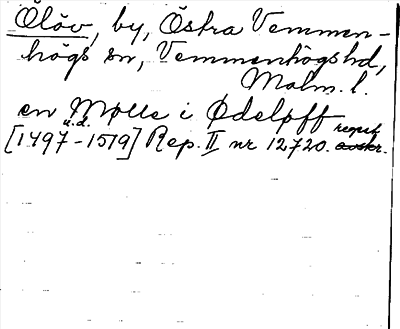 Ölöv, by, Östra Vemmen-
högs sn, Vemmenhögs hd,
Malm. l.
en Mølle i Ødelpff
[1497-1519] u.d. Rep. II nr 12720. regest avskr.